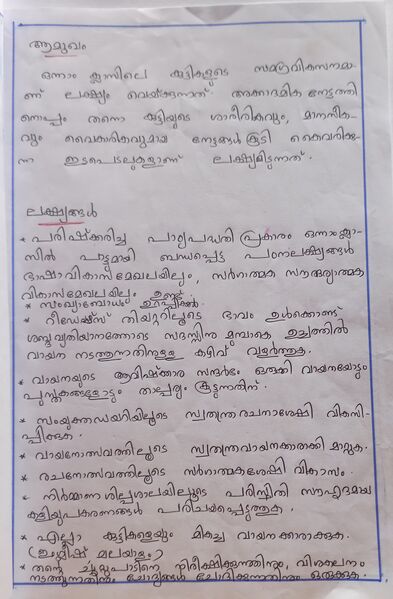 ആമുഖം
ഒന്നാം ക്ലാസിലെ കുട്ടികളുടെ സമഗ്രവികസനമാ
ണ് ലക്ഷ്യം വെയ്ക്കുന്നത്. അക്കാദമിക നേട്ടത്തി
നൊപ്പം തന്നെ കുട്ടിയുടെ ശാരീരികവും, മാനസിക
വും വൈകാരികവുമായ നേട്ടങ്ങൾ കൂടി കൈവരിക്കു
ന്ന ഇടപെടലുകളാണ് ലക്ഷ്യമിടുന്നത്.
ലക്ഷ്യങ്ങൾ
* പരിഷ്ക്കരിച്ച പാഠ്യപദ്ധതി പ്രകാരം ഒന്നാംക്ലാ
സിൽ പാട്ടുമായി ബന്ധപ്പെട്ട പഠനലക്ഷ്യങ്ങൾ
ഭാഷാവികാസമേഖലയിലും, സർഗാത്മക സൗന്ദര്യാത്മക
വികാസമേഖലയിലും ഉണ്ട്.
* സംഖ്യാബോധം ഉറപ്പിക്കൽ.
* റീഡേഴ്സ് തിയറ്ററിലൂടെ ഭാവം ഉൾക്കൊണ്ട്
ശബ്ദവ്യതിയാനത്തോടെ സദസ്സിനു മുമ്പാകെ ഉച്ചത്തിൽ
വായന നടത്തുന്നതിനുള്ള കഴിവ് വളർത്തുക.
* വായനയുടെ ആവിഷ്ക്കാര സന്ദർഭം ഒരുക്കി വായനയോടും
പുസ്തകങ്ങളോടും താല്പര്യം കൂട്ടുന്നതിന്.
* സംയുക്തഡയറിയിലൂടെ സ്വതന്ത്രരചനാശേഷി വികസി-
പ്പിക്കുക.
* വായനോത്സവത്തിലൂടെ സ്വതന്ത്രവായനക്കാരാക്കി മാറ്റുക.
* രചനോത്സവത്തിലൂടെ സർഗാത്മകശേഷി വികാസം.
* നിർമ്മാണശില്പശാലയിലൂടെ പരിസ്ഥിതി സൗഹൃദമായ
കളിയുപകരണങ്ങൾ പരിചയപ്പെടുത്തുക.
* എല്ലാ കുട്ടികളെയും മികച്ച വായനക്കാരാക്കുക.
(ഇംഗ്ലീഷ് മലയാളം)
* തന്റെ ചുറ്റുപാടിനെ നിരീക്ഷിക്കുന്നതിനും, വിശകലനം
നടത്തുന്നതിനും ചോദ്യങ്ങൾ ചോദിക്കുന്നതിനും ഒരുക്കുക.